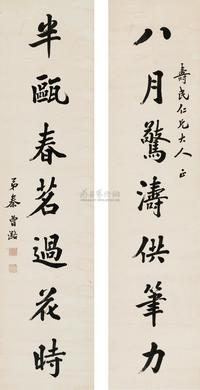 八月驚濤供筆力
壽民仁兄大人正
半甌春茗過花時
弟秦曾潞